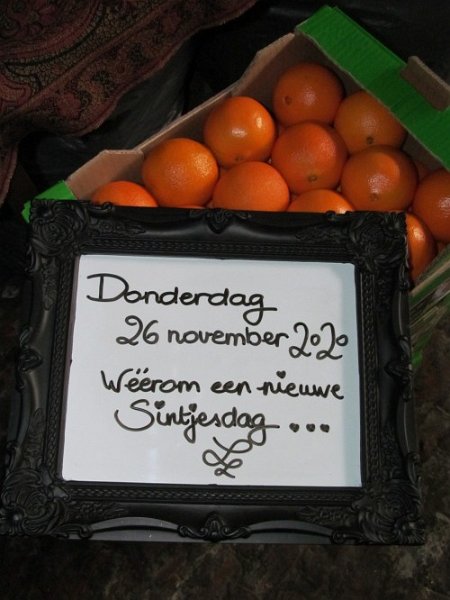 Donderdag
26 november 2020
Wéérom een nieuwe
Sintjesdag ...